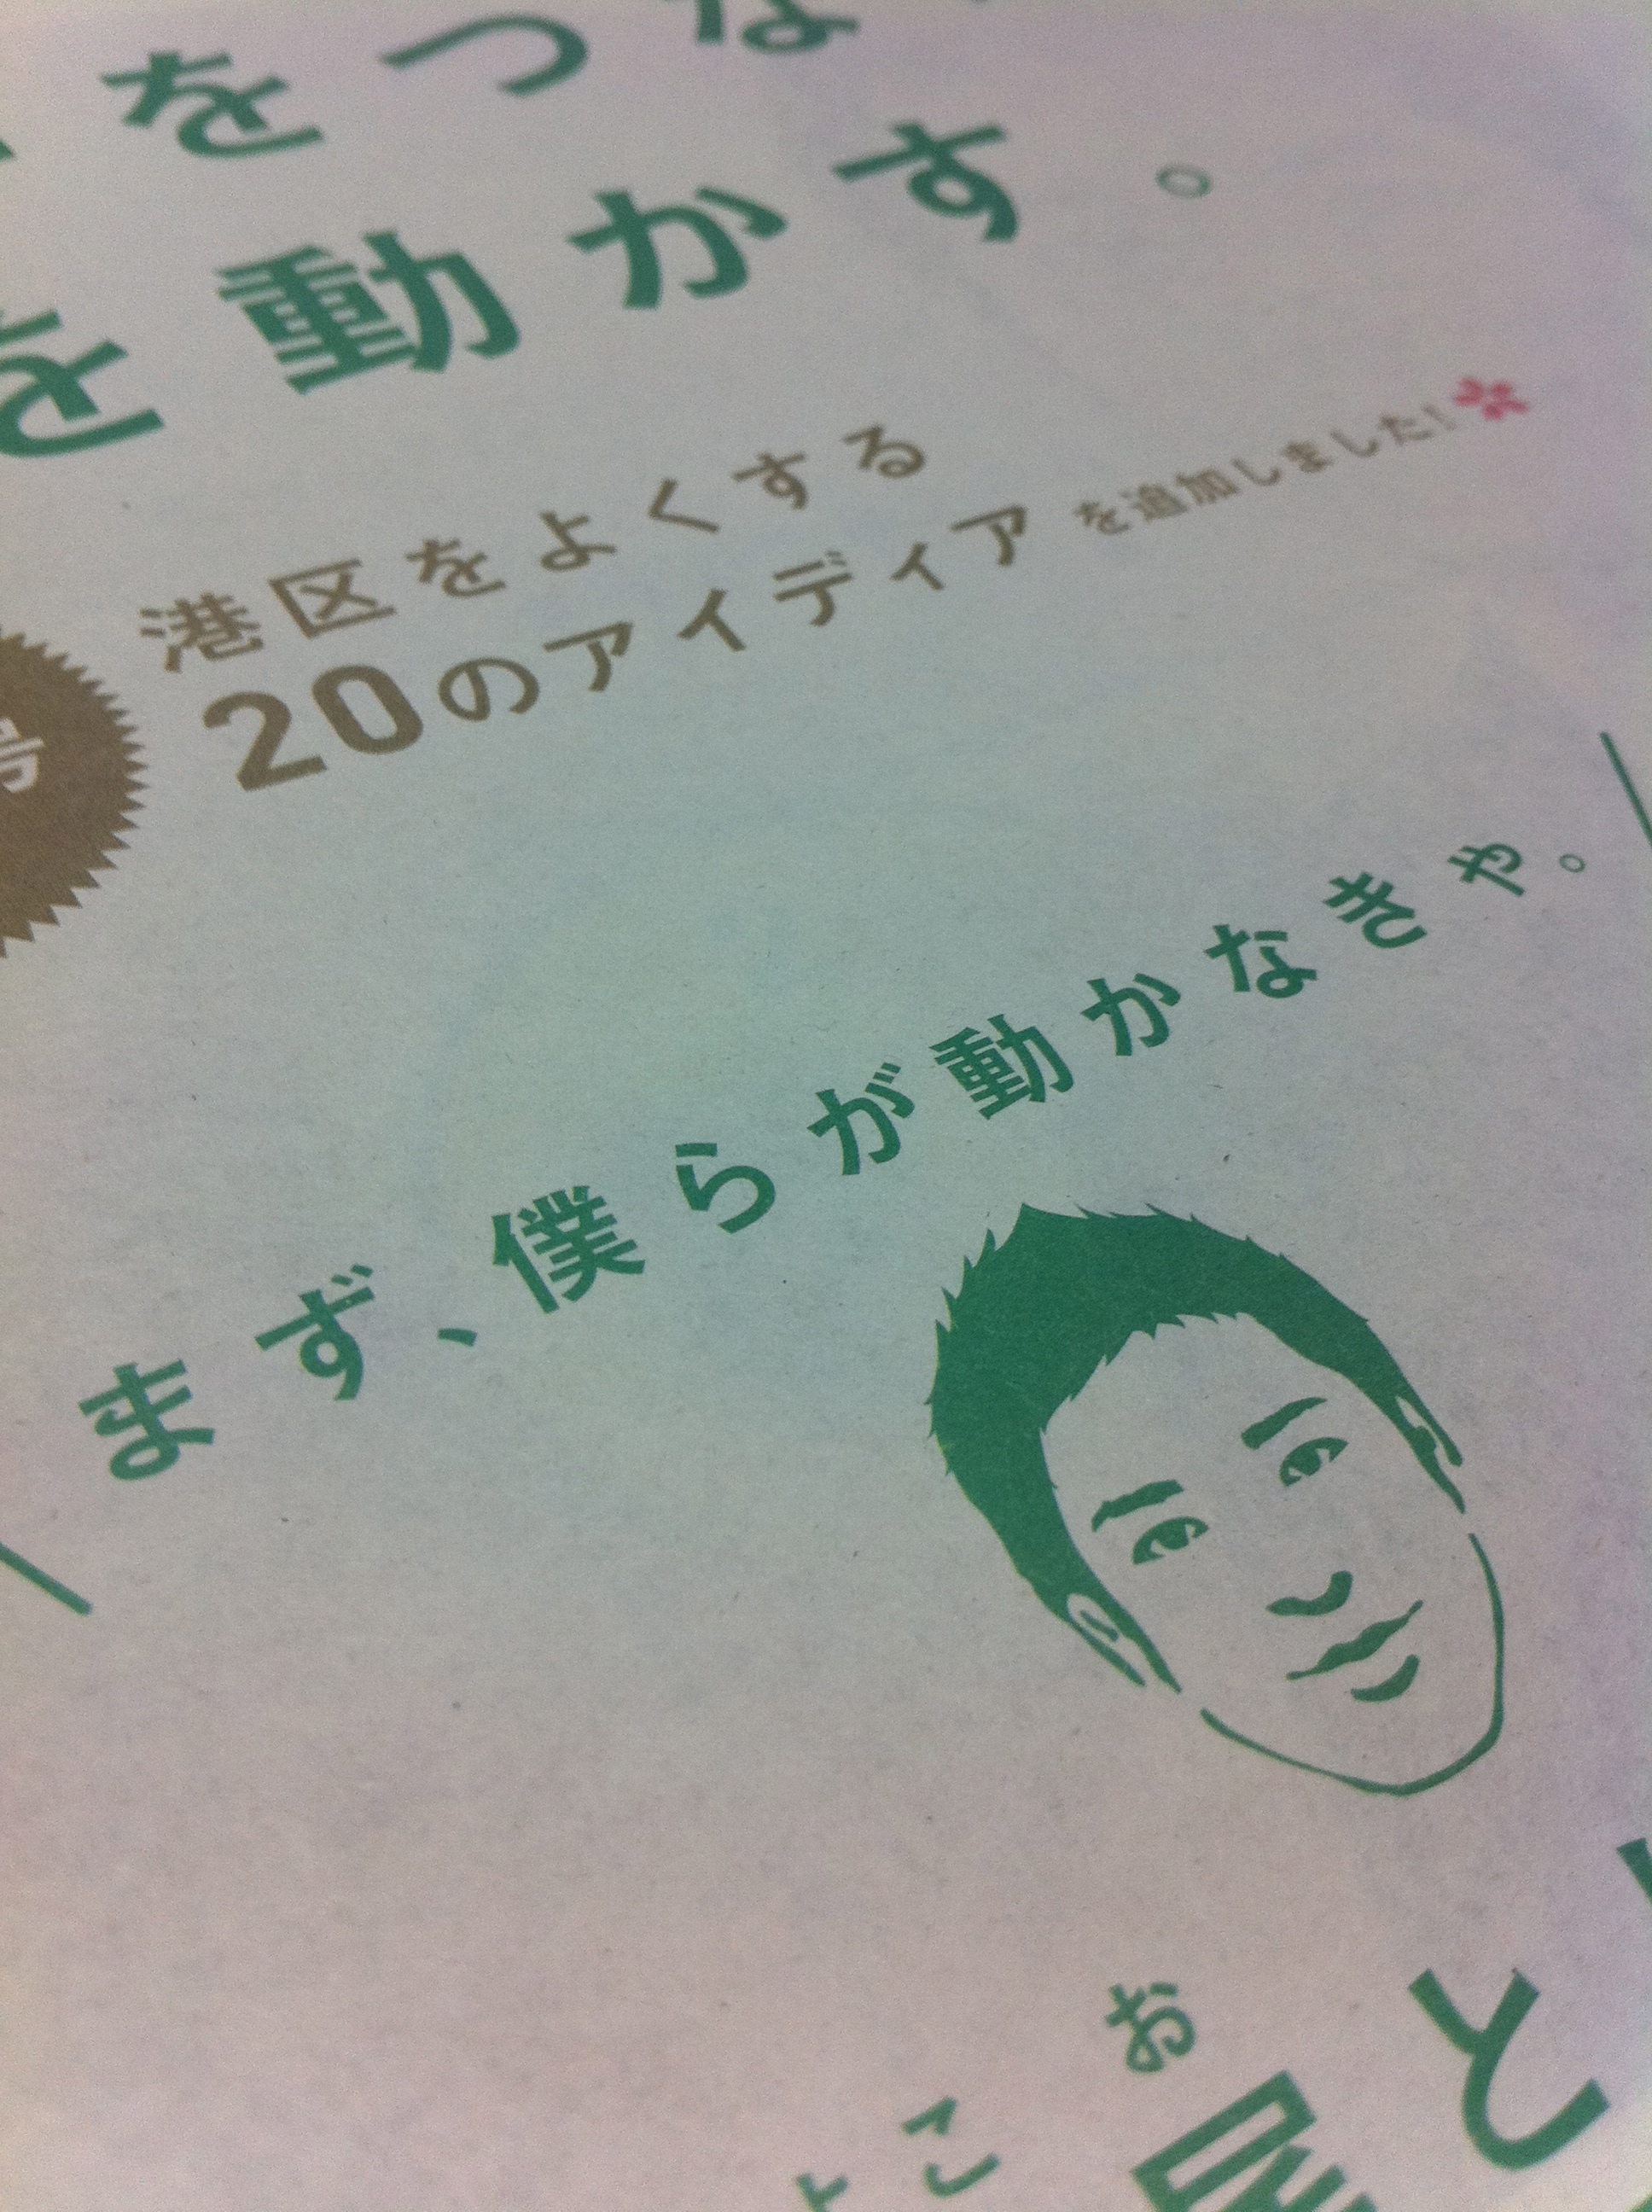 をつな
を動かす。
港区をよくする
20のアイディアを追加しました!
号
まず、僕らが動かなきゃ。
よこお
尾と